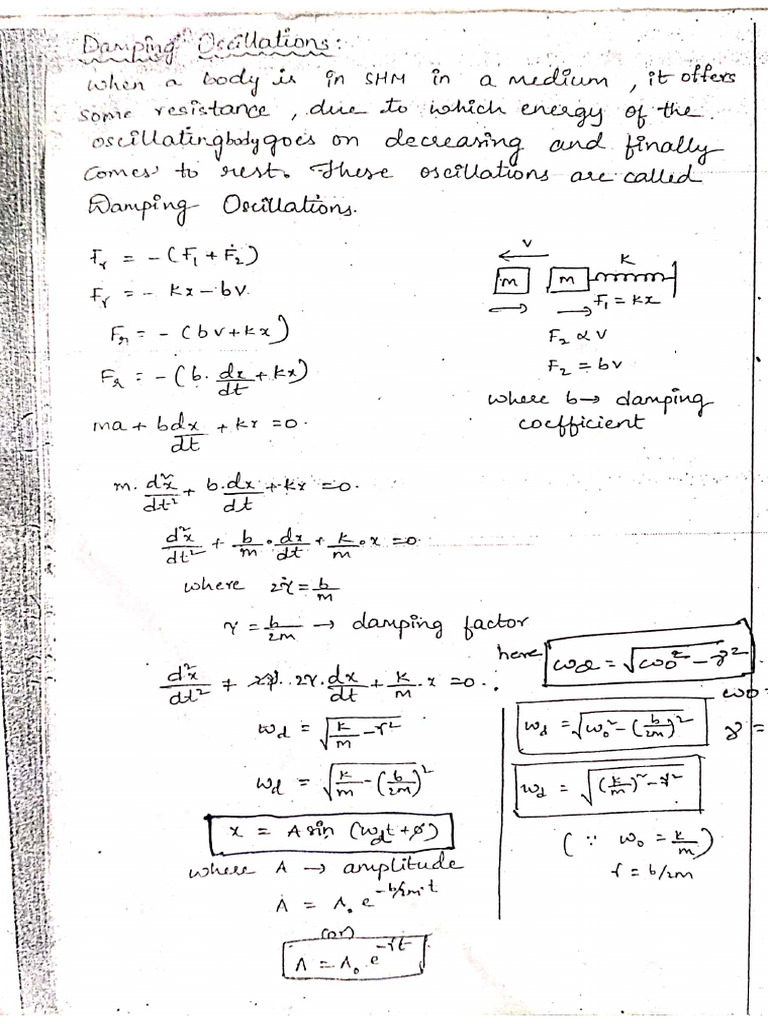 Damping Oscillations:
When a body is in SHM in a medium, it offers
some resistance, due to which energy of the
oscillating body goes on decreasing and finally
comes to rest. These oscillations are called
Damping Oscillations.
Fr = -(F1 + F2)
Fr = - kx - bv
Fr = - (bv + kx)
Fr = - (b. dx/dt + kx)
ma + b dx/dt + kx = 0.
m. d²x/dt² + b. dx/dt + kx = 0.
d²x/dt² + b/m . dx/dt + k/m . x = 0.
where 2γ = b/m
γ = b/2m → damping factor
d²x/dt² + 2γ. dx/dt + k/m . x = 0.
ωd = √(k/m - γ²)
ωd = √(k/m - (b/2m)²)
x = A sin (ωdt + φ)
where A → amplitude
A = A₀ e^(-b/2m t)
(or)
A = A₀ . e^(-γt)
v
K
m m
F1 = kx
F2 ∝ v
F2 = bv
where b → damping
coefficient
here ωd = √(ω0² - γ²)
ω0 =
γ =
ωd = √(ω0² - (b/2m)²)
ωd = √((k/m)² - γ²)
(∵ ω0 = k/m)
γ = b/2m